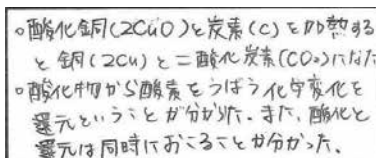 。酸化銅(2CuO)と炭素(C)を加熱する
と銅(2Cu)と二酸化炭素(CO₂)になた
。酸化物から酸素をうばう化学変化を
還元ということが分かった。また、酸化と
還元は同時におこることが分かった。